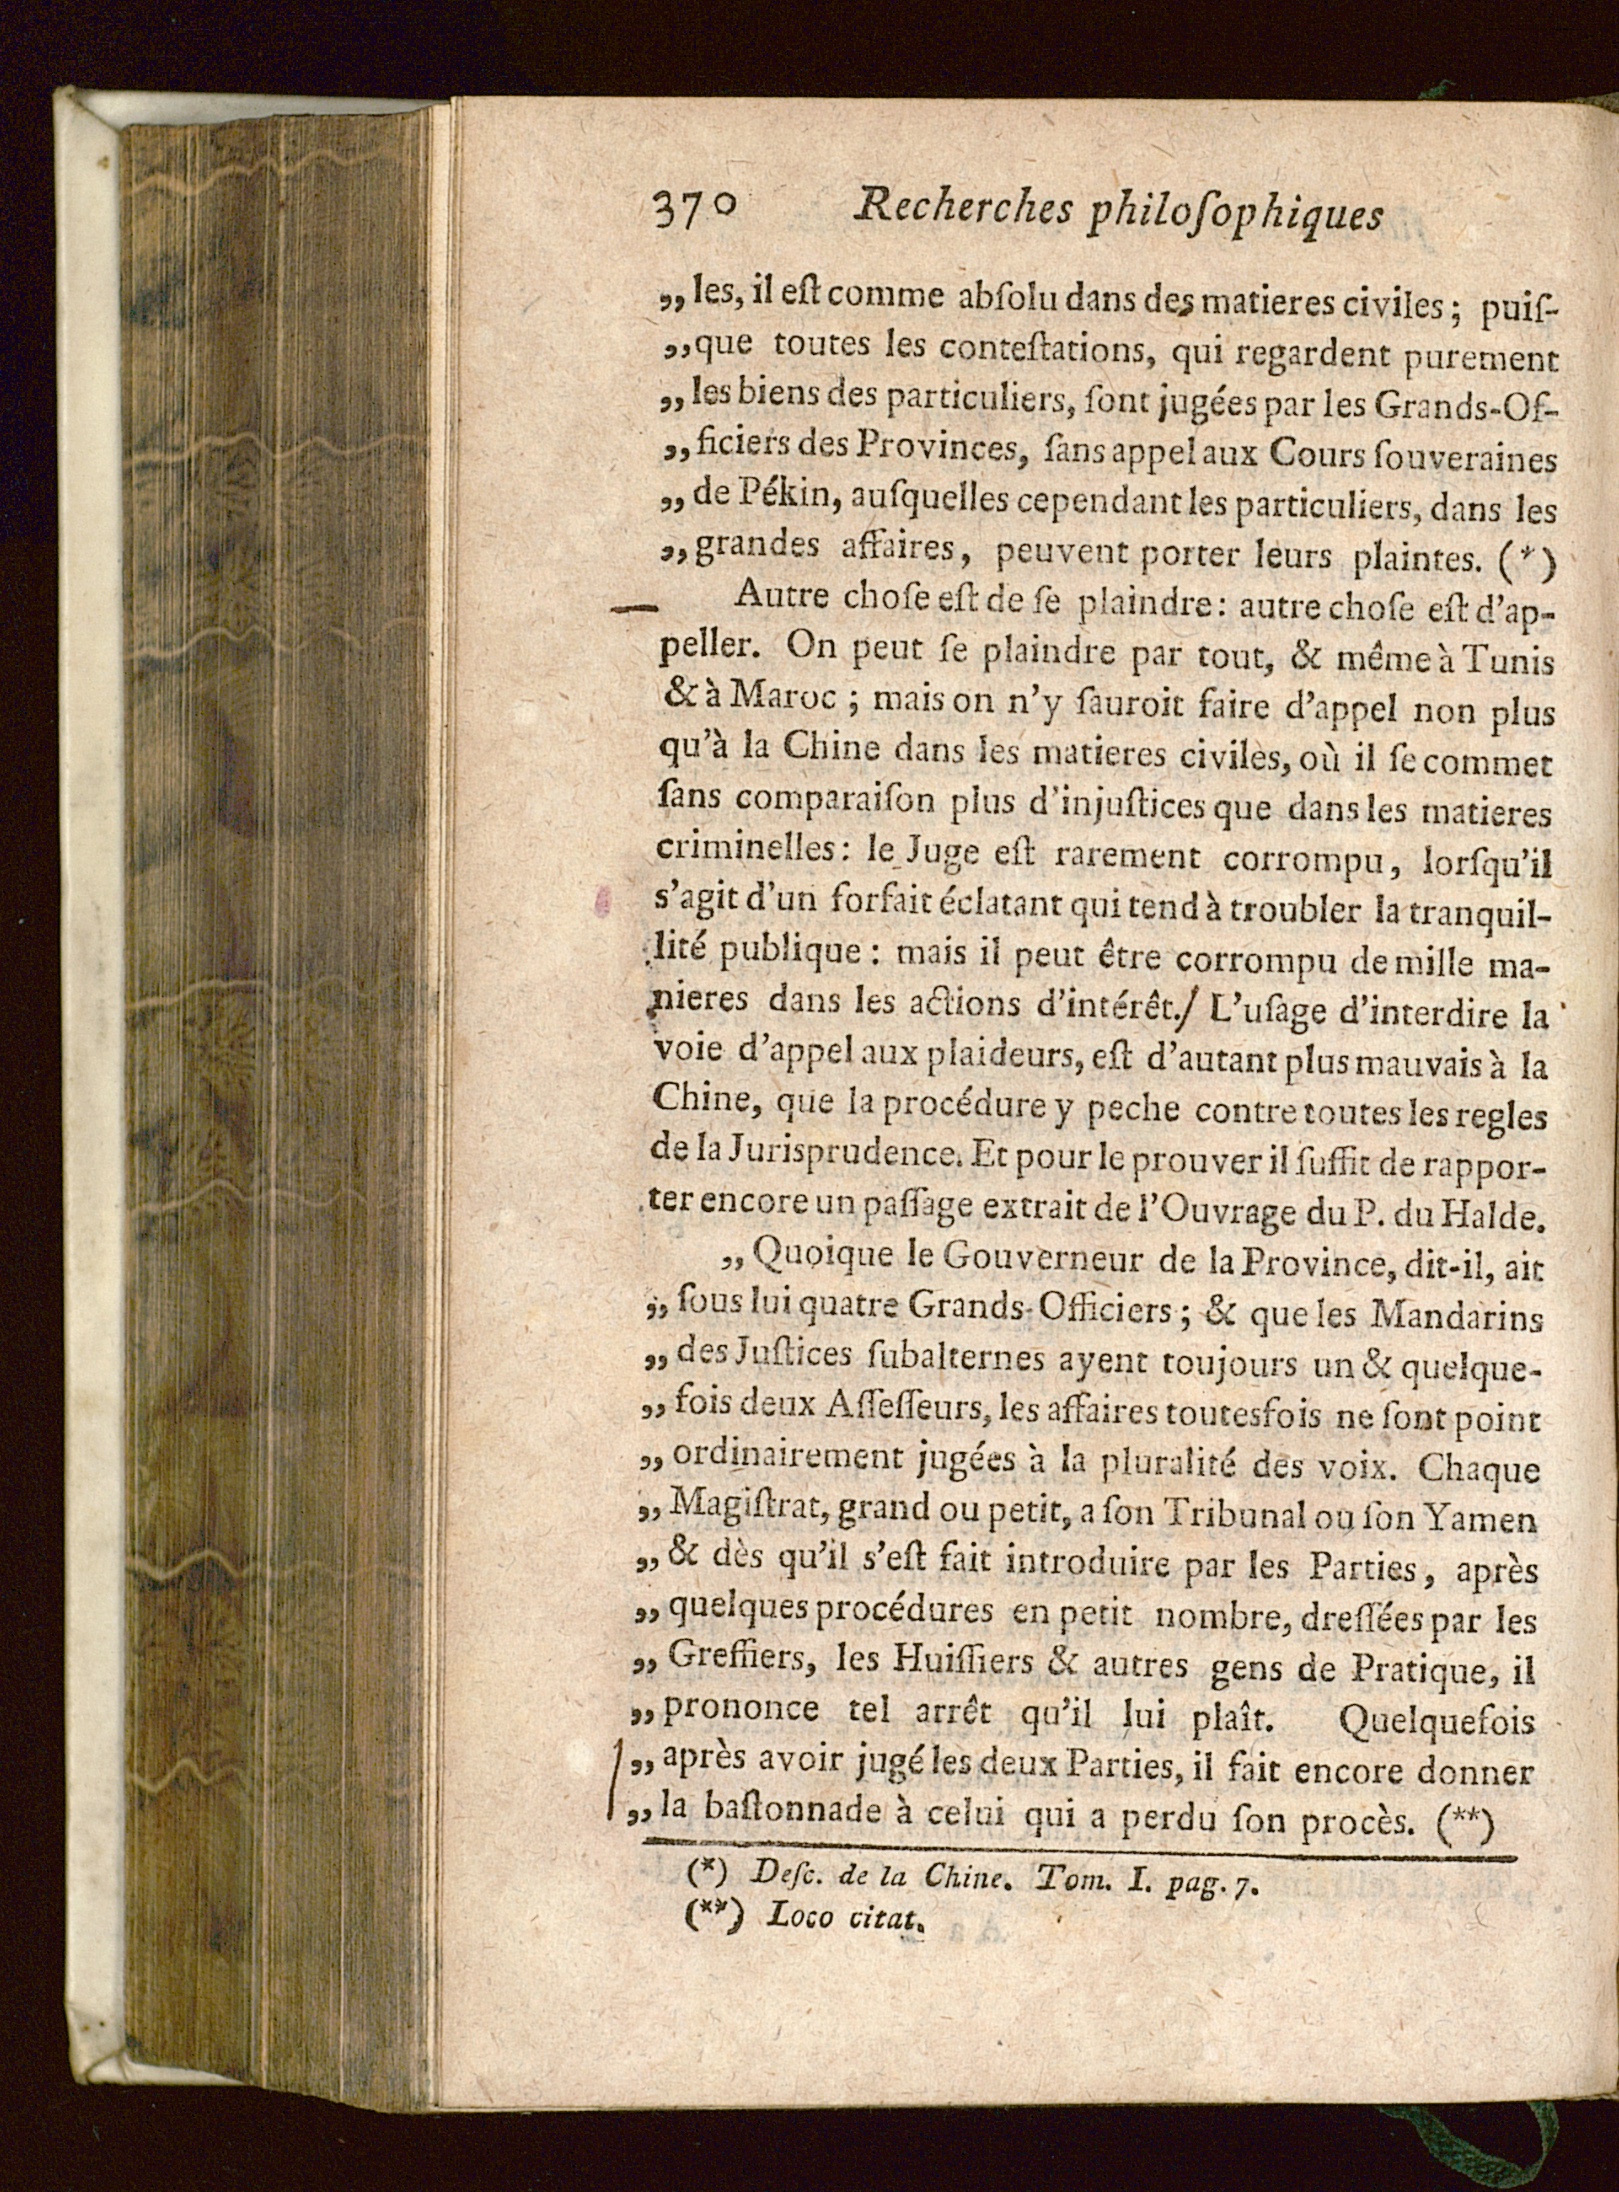 370 Recherches philoſophiques
„ les, il eſt comme abſolu dans des matieres civiles; puiſ-
„ que toutes les conteſtations, qui regardent purement
„ les biens des particuliers, ſont jugées par les Grands-Of-
„ ficiers des Provinces, ſans appel aux Cours ſouveraines
„ de Pékin, auſquelles cependant les particuliers, dans les
„ grandes affaires, peuvent porter leurs plaintes. (*)
Autre choſe eſt de ſe plaindre: autre choſe eſt d'ap-
peller. On peut ſe plaindre par tout, & même à Tunis
& à Maroc; mais on n'y ſauroit faire d'appel non plus
qu'à la Chine dans les matieres civiles, où il ſe commet
ſans comparaiſon plus d'injuſtices que dans les matieres
criminelles: le Juge eſt rarement corrompu, lorſqu'il
s'agit d'un forfait éclatant qui tend à troubler la tranquil-
lité publique: mais il peut être corrompu de mille ma-
nieres dans les actions d'intérêt./ L'uſage d'interdire la
voie d'appel aux plaideurs, eſt d'autant plus mauvais à la
Chine, que la procédure y peche contre toutes les regles
de la Jurisprudence. Et pour le prouver il ſuffit de rappor-
ter encore un paſſage extrait de l'Ouvrage du P. du Halde.
„ Quoique le Gouverneur de la Province, dit-il, ait
„ ſous lui quatre Grands-Officiers; & que les Mandarins
„ des Juſtices ſubalternes ayent toujours un & quelque-
„ fois deux Aſſeſſeurs, les affaires toutesfois ne ſont point
„ ordinairement jugées à la pluralité des voix. Chaque
„ Magiſtrat, grand ou petit, a ſon Tribunal ou ſon Yamen
„ & dès qu'il s'eſt fait introduire par les Parties, après
„ quelques procédures en petit nombre, dreſſées par les
„ Greffiers, les Huiſſiers & autres gens de Pratique, il
„ prononce tel arrêt qu'il lui plaît. Quelquefois
„ après avoir jugé les deux Parties, il fait encore donner
„ la baſtonnade à celui qui a perdu ſon procès. (**)
(*) Deſc. de la Chine. Tom. I. pag. 7.
(**) Loco citat.